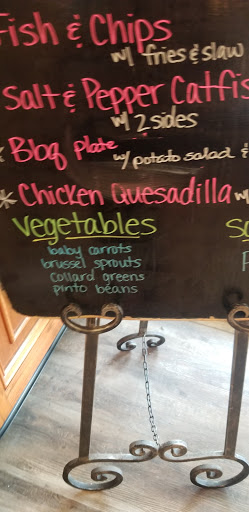 Fish & Chips
w/ fries & slaw
Salt & Pepper Catfis
w/ 2 sides
* Bbq Plate w/ potato salad &
* Chicken Quesadilla w/
Vegetables
baby carrots
brussel sprouts
collard greens
pinto beans